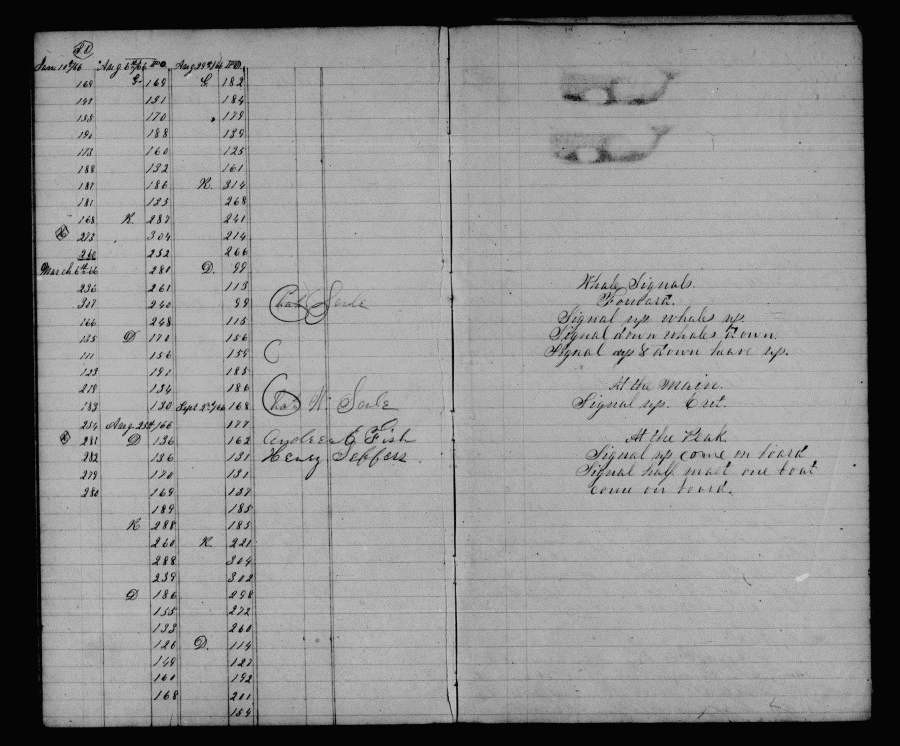 20
Jan 10th/66 Aug 6th/66 Aug 29th/66
169 G 169 G 182
147 151 184
155 170 179
190 188 139
173 160 125
188 132 161
187 186 K. 314
181 135 268
168 K. 287 241
213 304 214
266 252 266
March 6th 66 281 D. 99
236 261 113
307 240 99 Chas Soule
166 248 115
135 D 170 156
111 156 159 C
123 191 185
219 134 186
183 130 Sept 2d/66 168 Chas W. Soule
254 Aug 23d/66 177
281 D 136 162 Andrew E Fish
282 136 151 Henry Jeffers.
279 170 131
280 169 157
189 185
K 288 183
260 K 221
288 304
239 302
D 186 298
155 272
133 260
126 D. 114
149 127
160 192
168 201
154
Whale Signals.
Forward.
Signal up whales up.
Signal down whales down.
Signal up & down leave up.
At the Main.
Signal up. Cut.
At the Peak.
Signal up come on board
Signal half mast one boat
come on board.